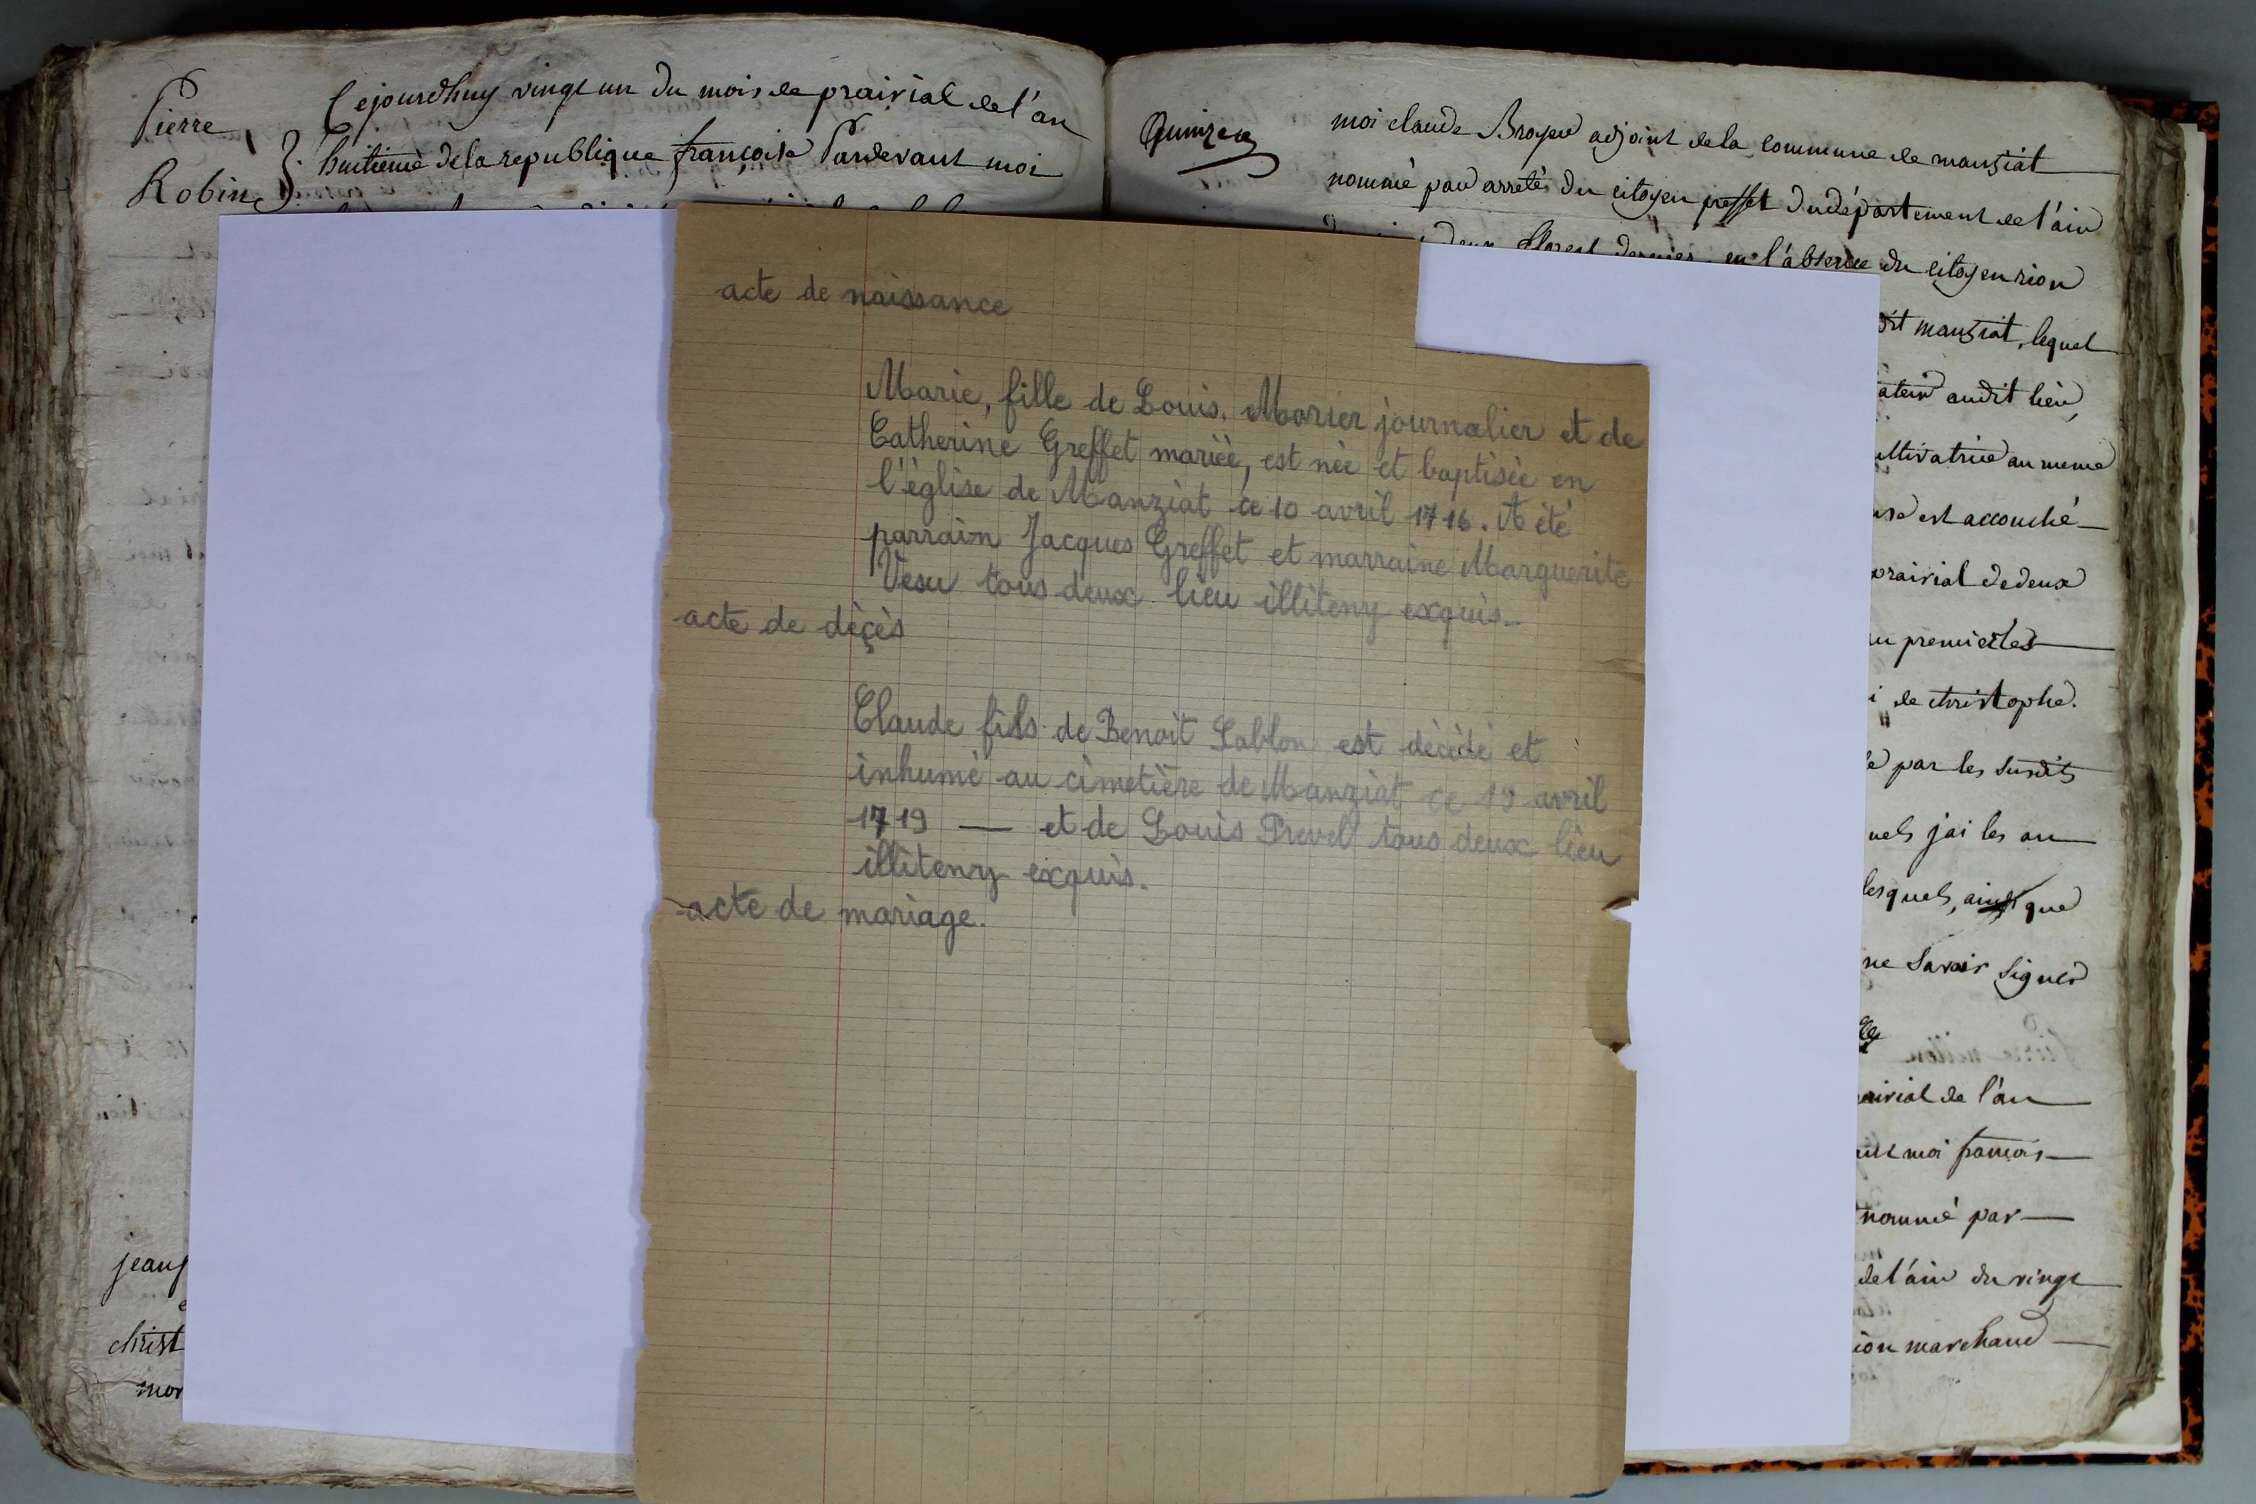 Pierre
Robin
Cejourdhuy vingt un du mois de prairial de l'an
huitieme de la republique françoise Pardevant moi
jean
christ
mor
acte de naissance
Marie, fille de Louis. Morier journalier et de
Catherine Greffet mariée, est née et baptisée en
l'église de Manziat ce 10 avril 1716. A été
parrain Jacques Greffet et marraine Marguerite
Vesu tous deux lieu illiteny exquis.
acte de décès
Claude fils de Benoit Lablon est décédé et
inhumé au cimetière de Manziat ce 19 avril
1719 — et de Louis Prevel tous deux lieu
illiteny exquis.
acte de mariage.
moi claude Broyer adjoint de la commune de manziat
nommé par arretés du citoyen preffet du département de l'ain
deux floreal dernier, en l'absence du citoyen rion
dit manziat, lequel
audit lieu,
ultivatrice au meme
est accouché
prairial de deux
au premier les
i de christophe.
é par les susdits
uels j'ai les an
lesquels, ainsi que
ne savoir signer
airial de l'an
moi françois
nommé par
de l'ain du vingt
ion marchand